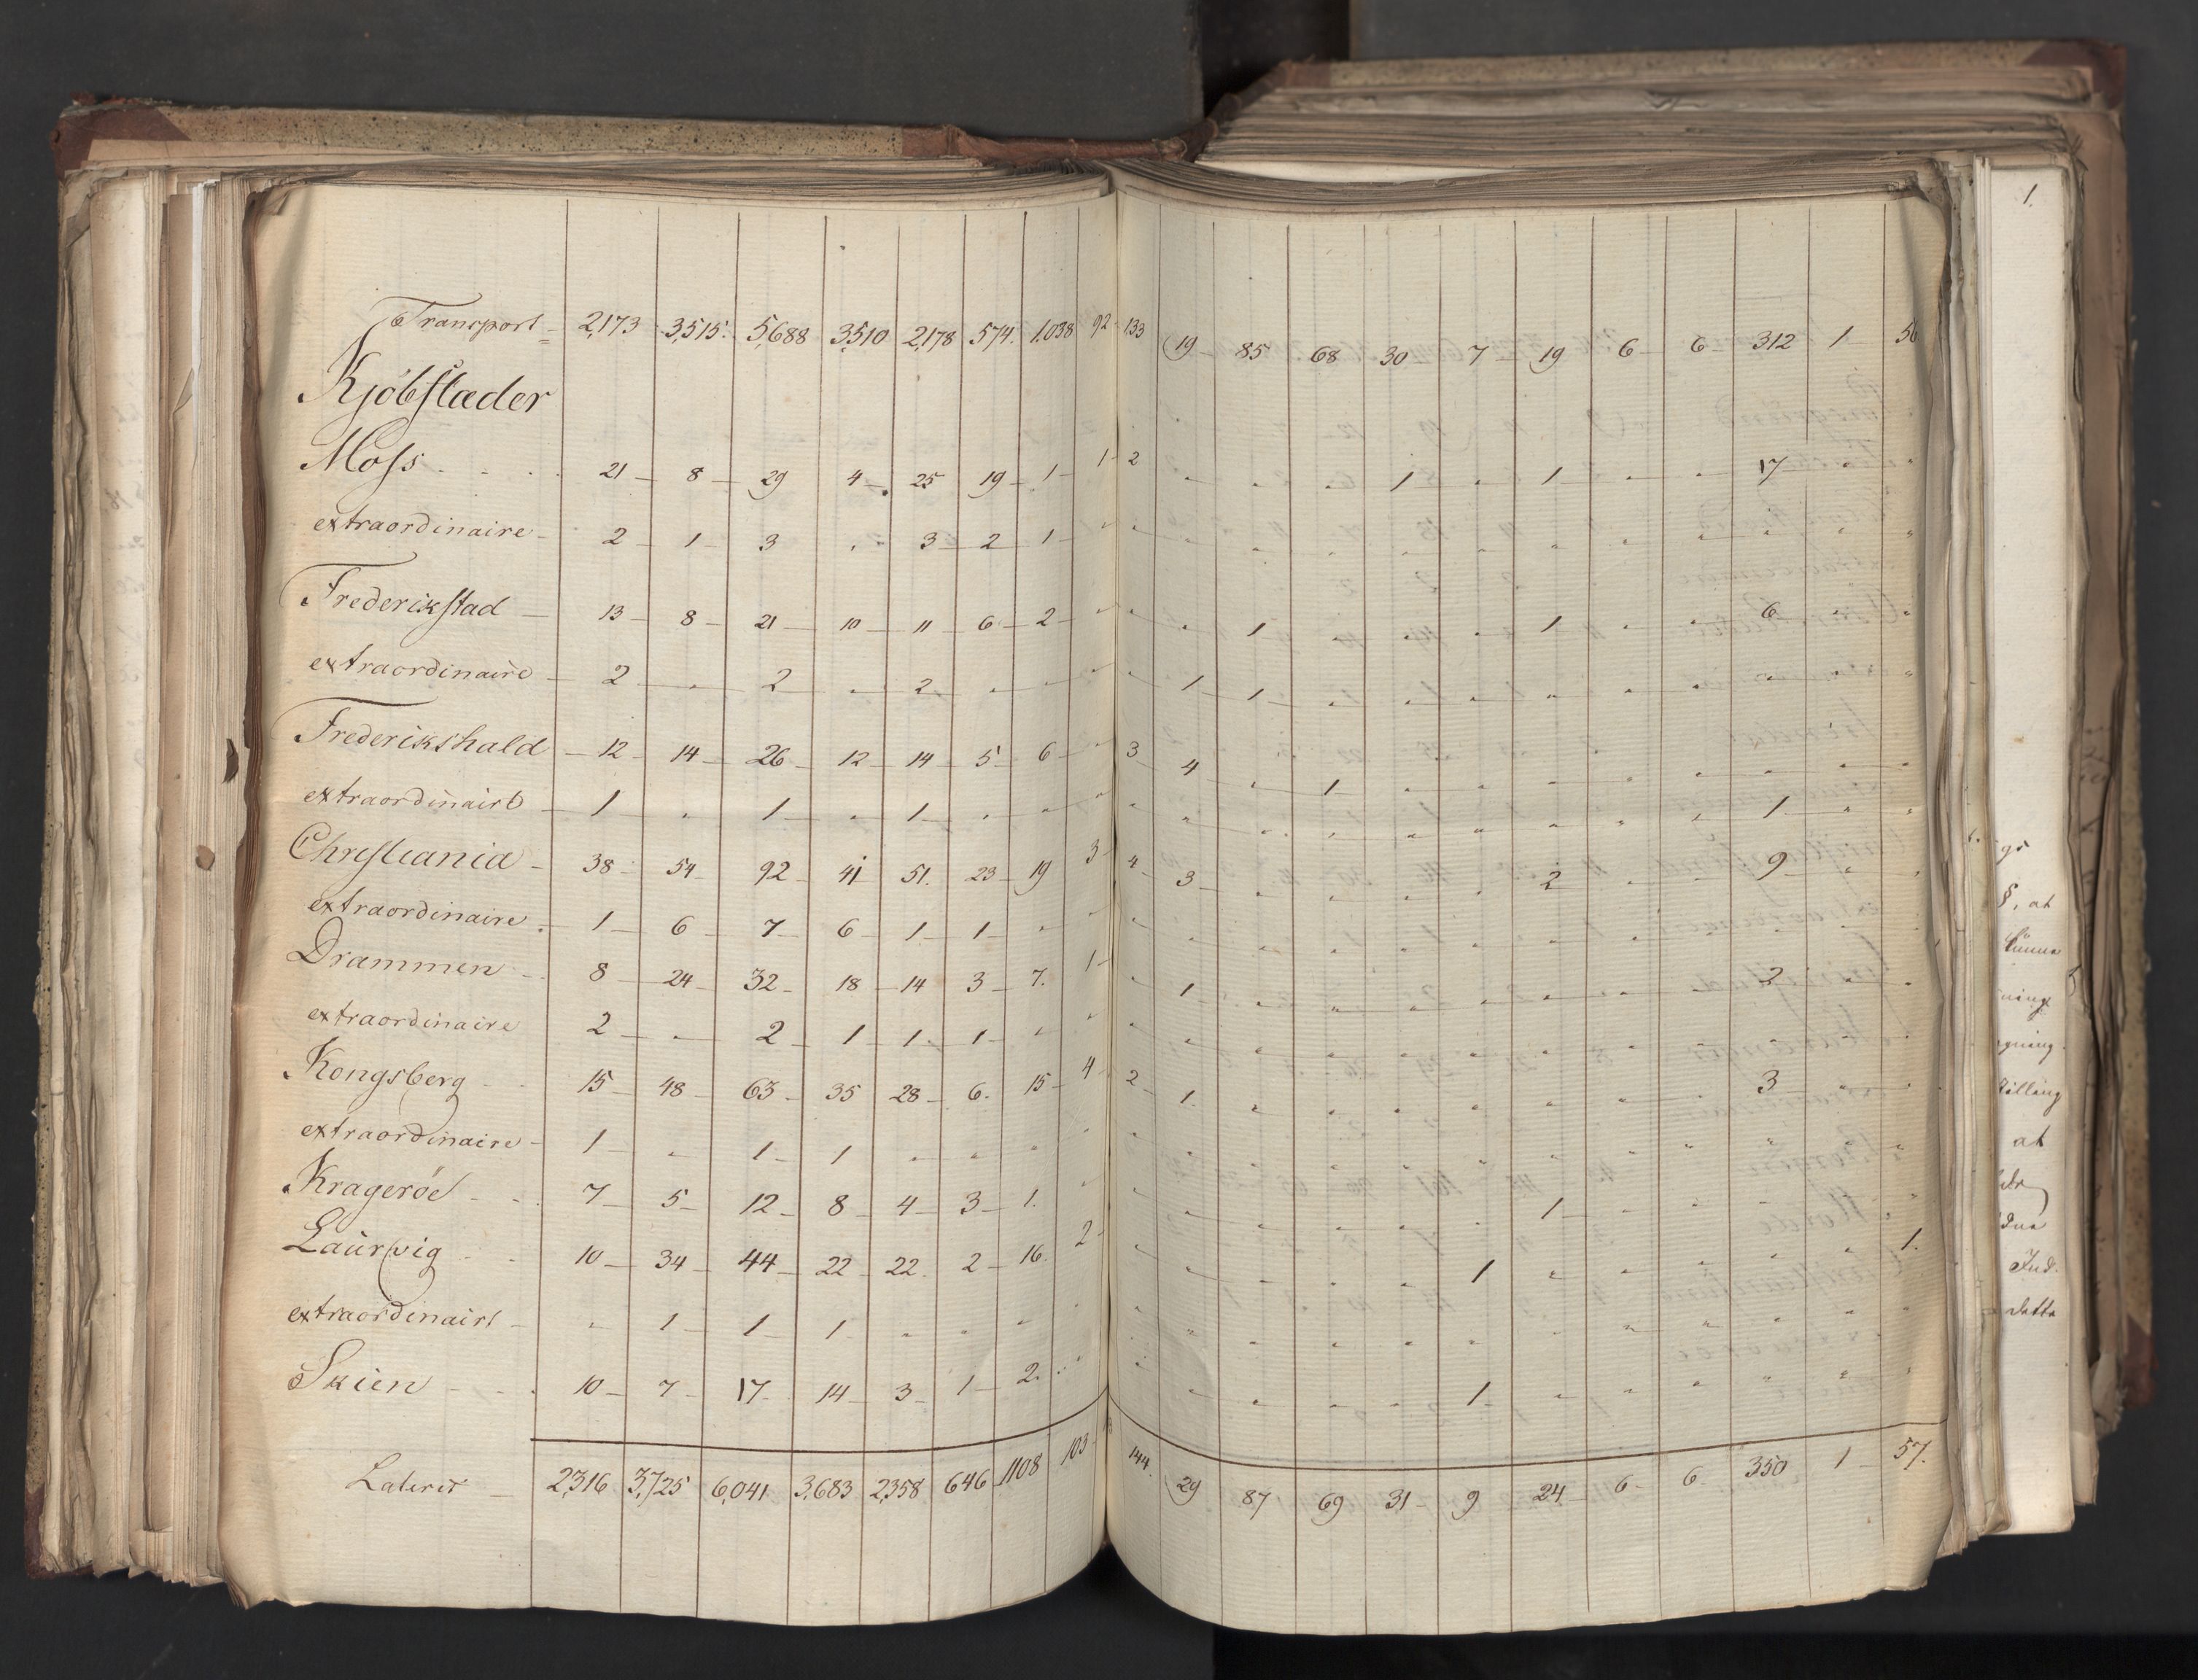 Transport = 2,173 3,515. 5,688 3,510 2,178 574. 1.038 92 133 19 85 68 30 7 19 6 6 312 1 56
Kjöbstæder
Moss 21 8 29 4 25 19 1 1 2 " " " 1 " 1 " " 17 " "
extraordinaire 2 1 3 " 3 2 1 " " " " " " " " " " " " "
Frederikstad 13 8 21 10 11 6 2 " " " 1 " " " 1 " " 6 " "
extraordinaire 2 " 2 " 2 " " " " 1 1 " " " " " " " " "
Frederikshald 12 14 26 12 14 5 6 " 3 4 " 1 " " " " " " " "
extraordinairt 1 " 1 " 1 " " " " " " " " " " " " 1 " "
Christiania 38 54 92 41 51. 23 19 3 4 3 " " " " 2 " " 9 " "
extraordinaire 1 6 7 6 1 1 " " " " " " " " " " " " " "
Drammen 8 24 32 18 14 3 7. 1 " 1 " " " " " " " 2 " "
extraordinaire 2 " 2 1 1 1 " " " " " " " " " " " " " "
Kongsberg 15 48 63 35 28 6. 15 4 2 1. " " " " " " " 3 " "
extraordinaire 1 " 1 1 " " " " " " " " " " " " " " " "
Krageröe 7 5 12 8 4 3 1. " " " " " " " 1 " " " " "
Laurvig 10 34 44 22 22. 2 16. 2 " " " " " 1 " " " " " 1.
extraordinairt " 1 1 1 " " " " " " " " " " " " " " " "
Skien 10 7 17 14 3 1 2. " " " " " " 1 " " " " " "
Lateris 2,316 3,725 6,041 3,683 2,358 646 1108 103 144. 29 87 69 31 9 24 6 6 350 1 57.
1.
§, at
kunne
at
Ind.
dette